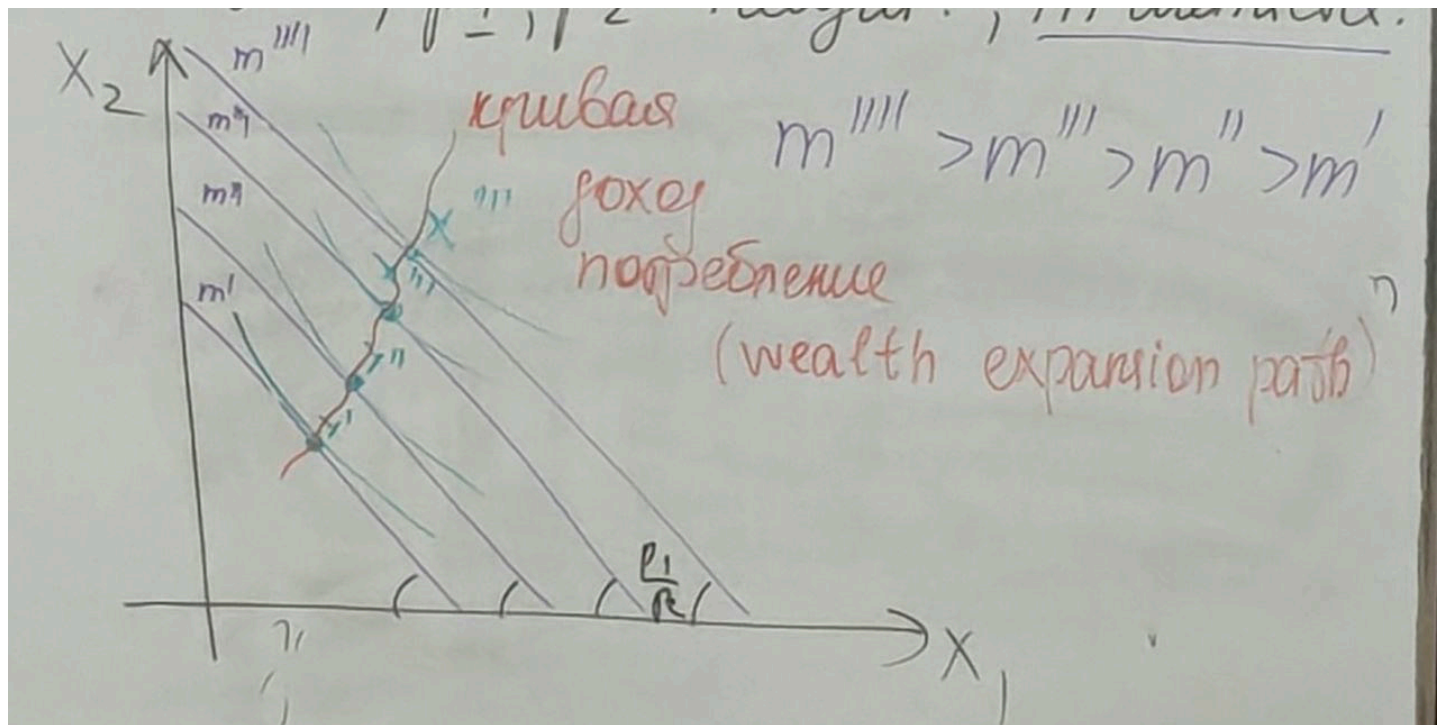 X₂
m''''
m'''
m''
m'
кривая
доход
потребление
(wealth expansion path)
m'''' > m''' > m'' > m'
x''''
x'''
x''
x'
P₁
P₂
X₁